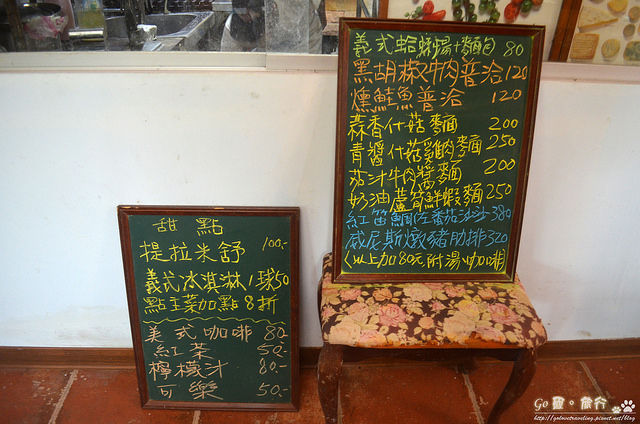 義式蛤蜊湯+麵包 80
黑胡椒牛肉普洽 120
燻鮭魚普洽 120
蒜香什菇麵 200
青醬什菇雞肉麵 250
茄汁牛肉醬麵 200
奶油蘆筍鮮蝦麵 250
紅笛鯛佐番茄沙沙 380
威尼斯燉豬肋排 320
(以上加80元附湯、咖啡)
甜點
提拉米舒 100.-
義式冰淇淋1球50
點主菜加點8折
美式咖啡 80.-
紅茶 50.-
檸檬汁 80.-
可樂 50.-
Go 旅行
http://golovetraveling.pixnet.net/blog